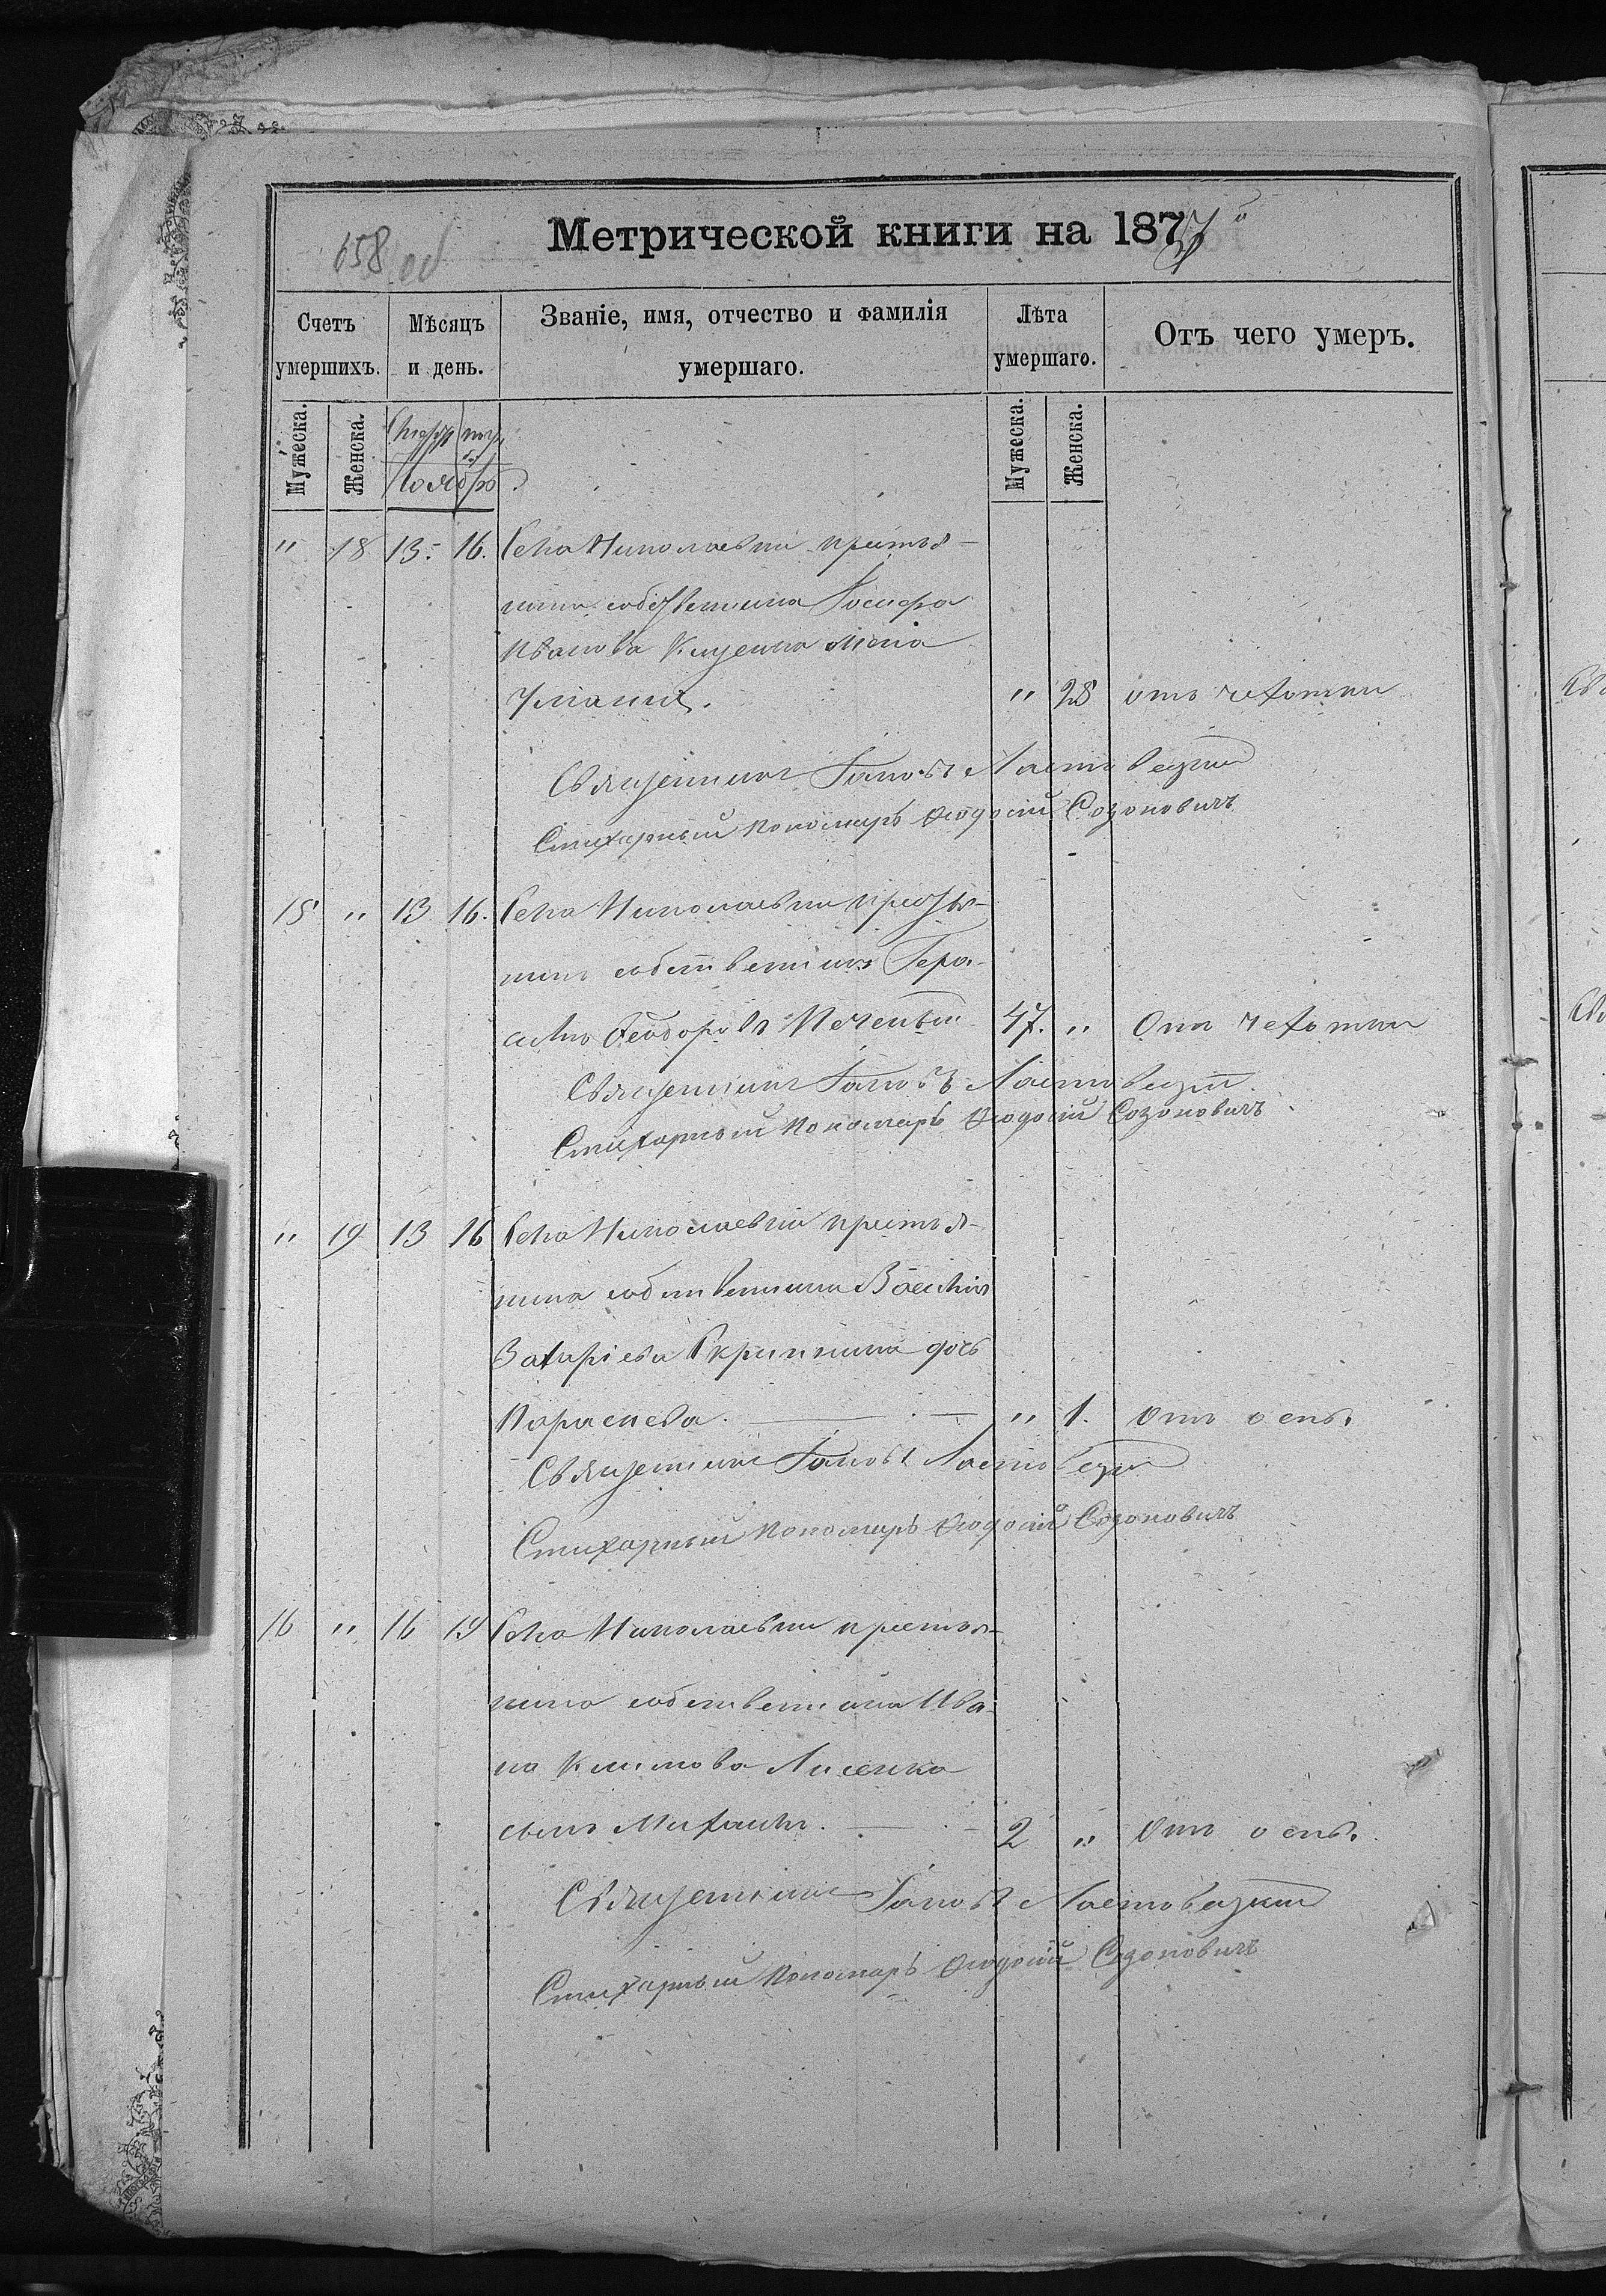 Метрической книги на 1877
658 об
Счетъ умершихъ.
Мѣсяцъ и день.
Званіе, имя, отчество и фамилія умершаго.
Лѣта умершаго.
Отъ чего умеръ.
Мужеска.
Женска.
Ноябрь
Мужеска.
Женска.
" 18 13. 16. Села Николаевки крестья-
нина собственника Іосифа
Иванова жена
" 28 отъ чахотки
Священникъ Іаковъ Ластовецкій
Стихарный пономарь Ѳеодосій Созоновичъ
15 " 13 16. Села Николаевки крестья-
нинъ собственникъ Гера-
симъ Ѳеодоровъ Печеный 47. " Отъ чахотки
Священникъ Іаковъ Ластовецкій
Стихарный пономарь Ѳеодосій Созоновичъ
" 19 13 16 Села Николаевки крестья-
нина собственника Василія
Захаріева Скрипника дочь
Параскева. " 1. Отъ оспы.
Священникъ Іаковъ Ластовецкій
Стихарный пономарь Ѳеодосій Созоновичъ
16 " 16 19 Села Николаевки крестья-
нина собственника Ива-
на Климова Лисенка
сынъ Михаилъ. 2 " Отъ оспы.
Священникъ Іаковъ Ластовецкій
Стихарный пономарь Ѳеодосій Созоновичъ